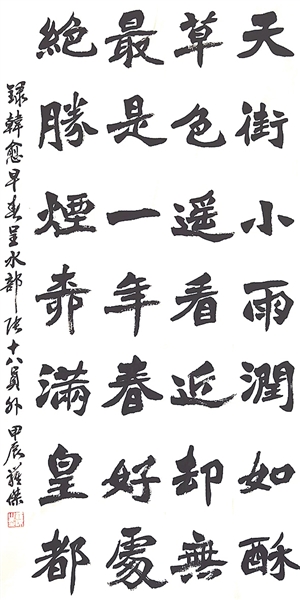 天街小雨潤如酥
草色遥看近却無
最是一年春好處
絕勝煙柳滿皇都
録韓愈早春呈水部張十八員外 甲辰